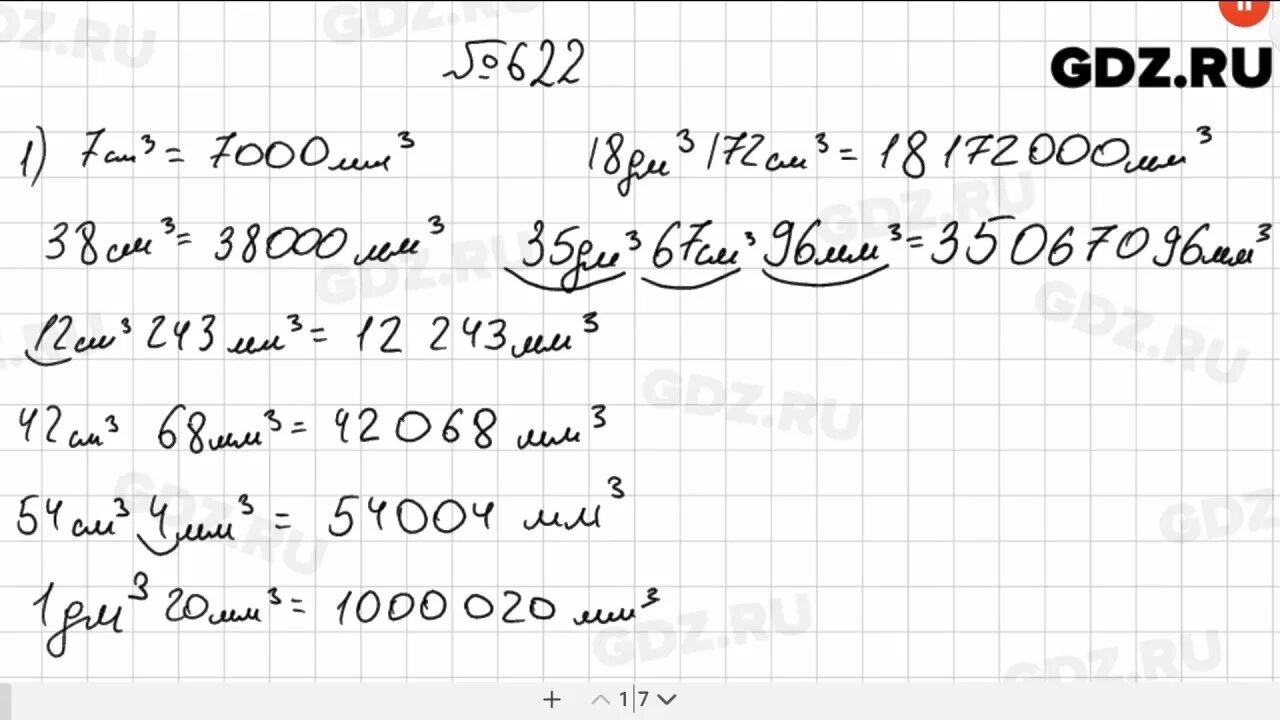 №622
GDZ.RU
1) 7см³ = 7000мм³
18дм³ 172см³ = 18 172 000мм³
38см³ = 38000мм³
35дм³ 67см³ 96мм³ = 35 067 096мм³
12см³ 243мм³ = 12 243мм³
42см³ 68мм³ = 42 068 мм³
54см³ 4мм³ = 54004 мм³
1дм³ 20мм³ = 1000 020 мм³
1|7